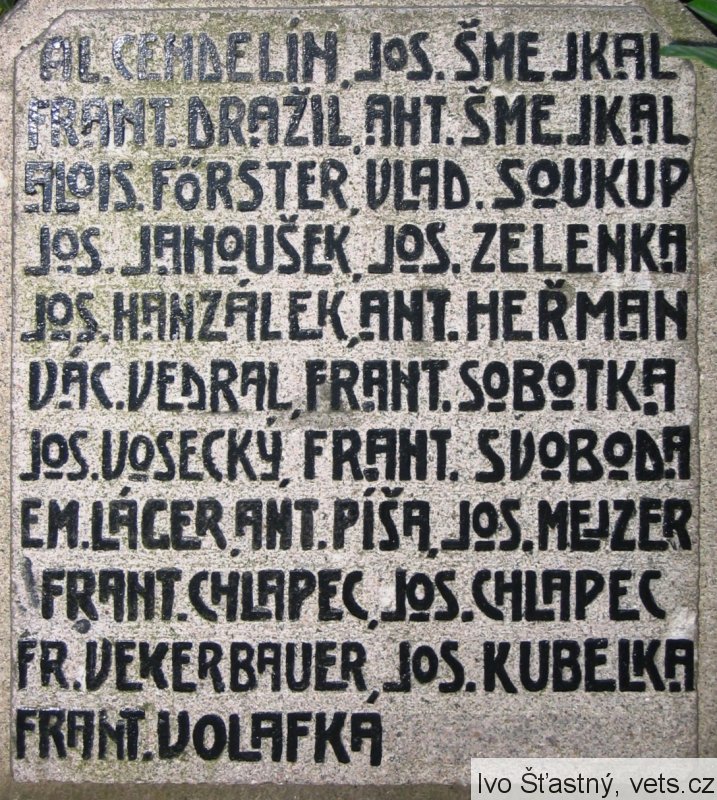 AL. CENDELÍN, JOS. ŠMEJKAL
FRANT. DRAŽIL, ANT. ŠMEJKAL
ALOIS. FŐRSTER, VLAD. SOUKUP
JOS. JANOUŠEK, JOS. ZELENKA
JOS. HANZÁLEK, ANT. HEŘMAN
VÁC. VEDRAL, FRANT. SOBOTKA
JOS. VOSECKÝ, FRANT. SVOBODA
EM. LÁGER, ANT. PÍŠA, JOS. MEJZER
FRANT. CHLAPEC, JOS. CHLAPEC
FR. VEKERBAUER, JOS. KUBELKA
FRANT. VOLAFKA
Ivo Šťastný, vets.cz